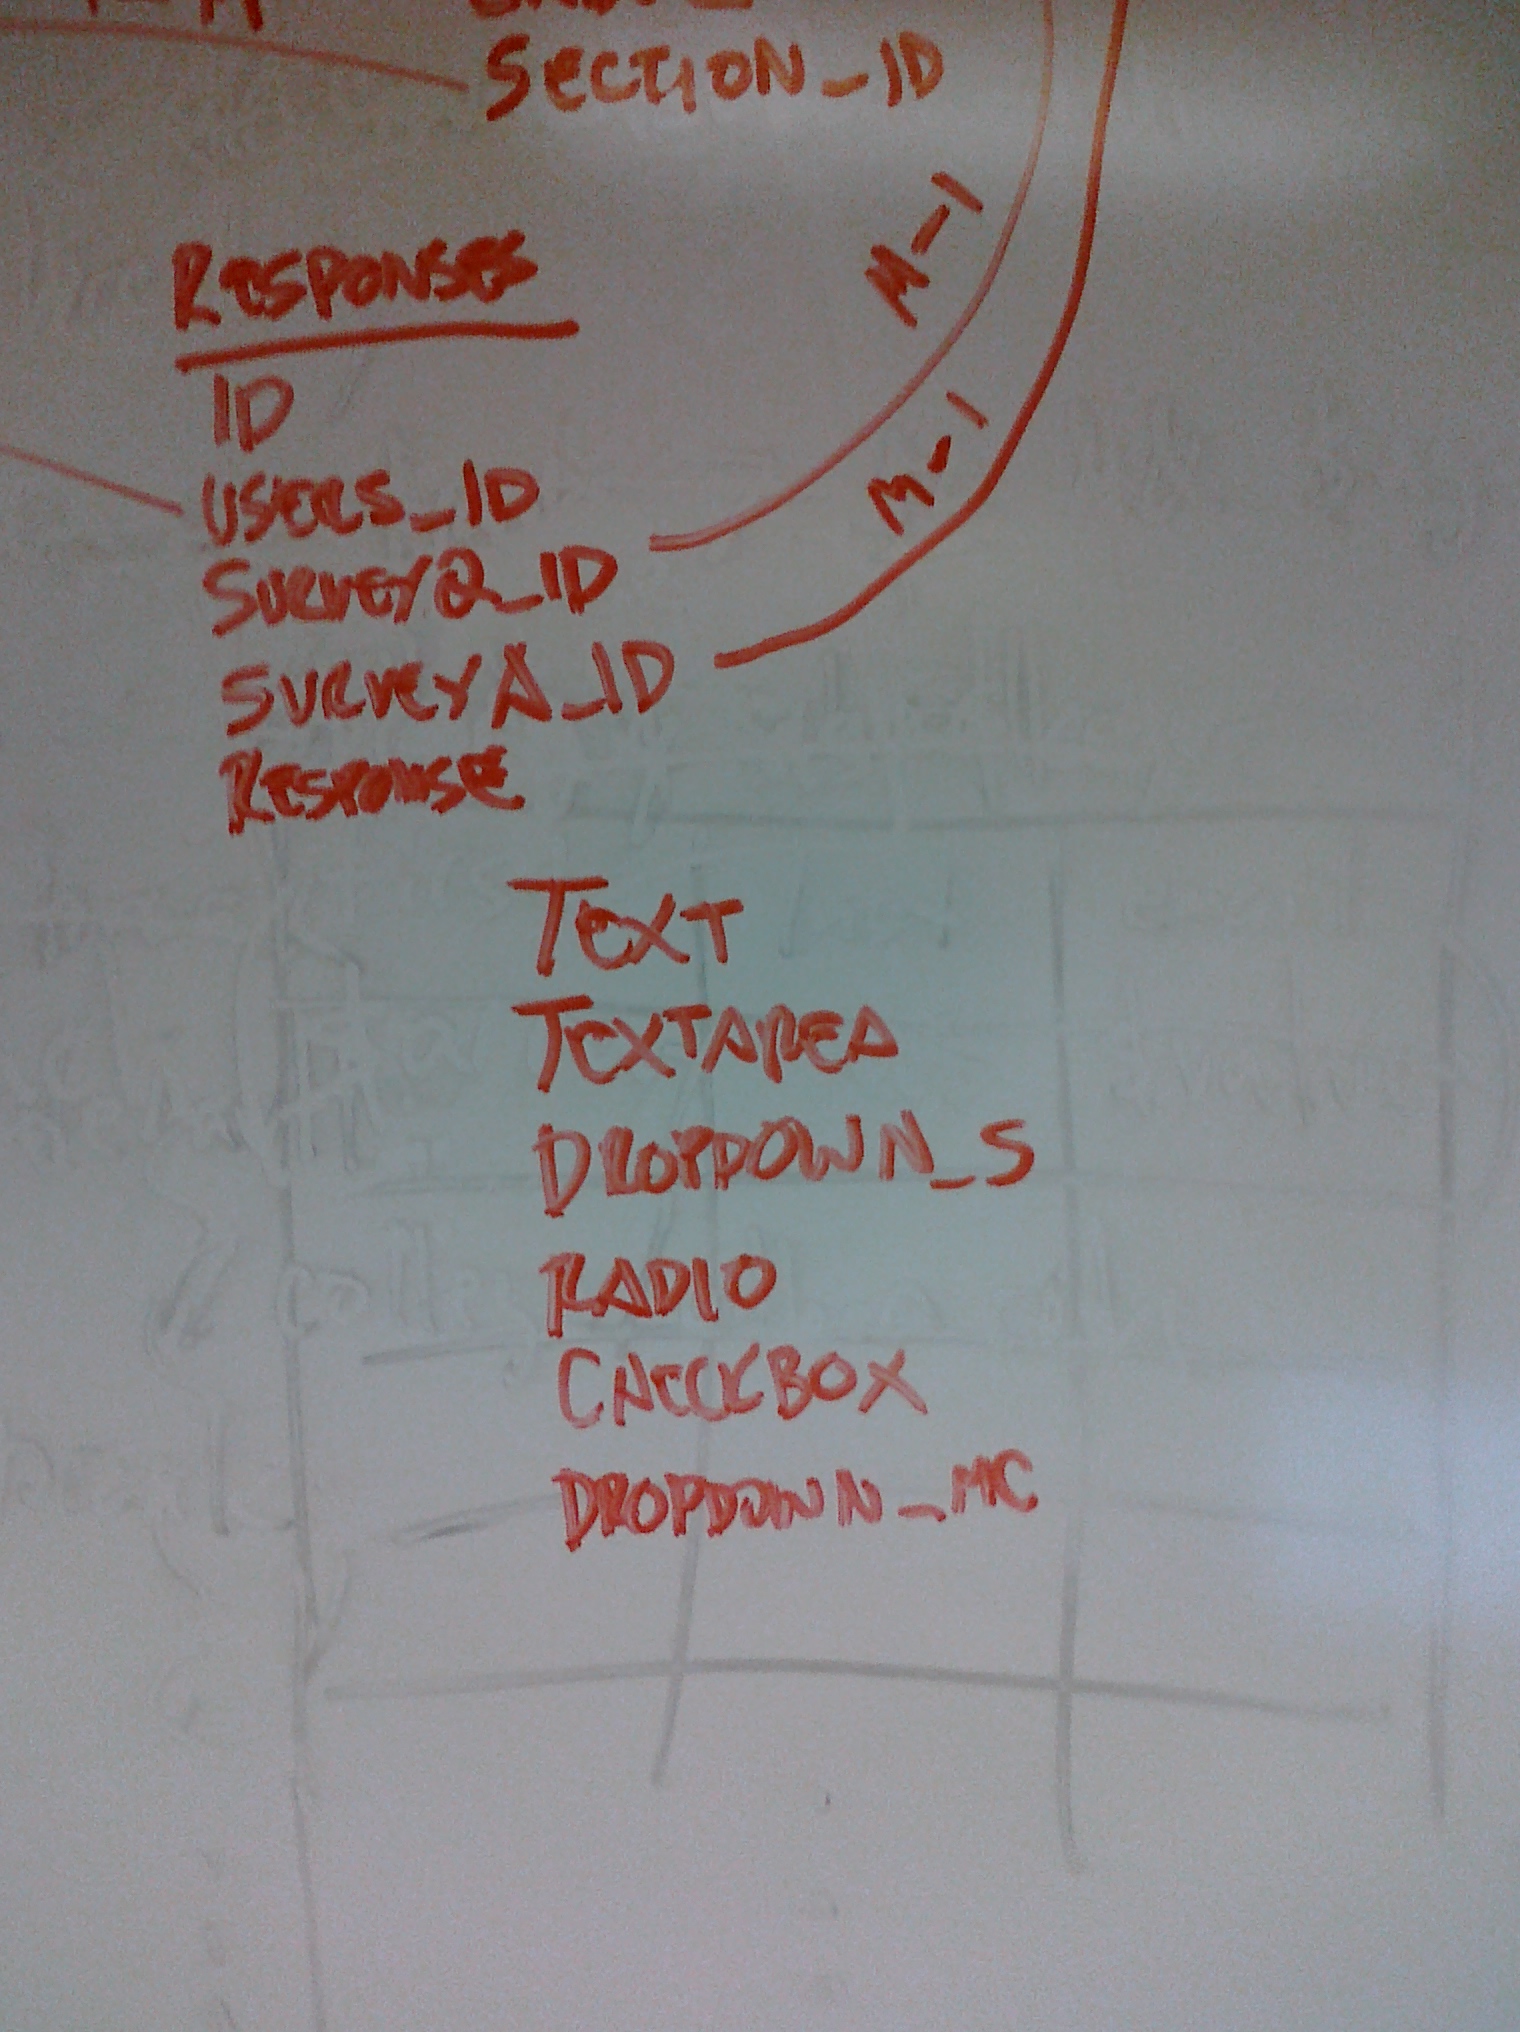 SECTION_ID
M-1
RESPONSES
ID
M-1
USERS_ID
SURVEYQ_ID
SURVEYA_ID
RESPONSE
TEXT
TEXTAREA
DROPDOWN_S
RADIO
CHECKBOX
DROPDOWN_MC